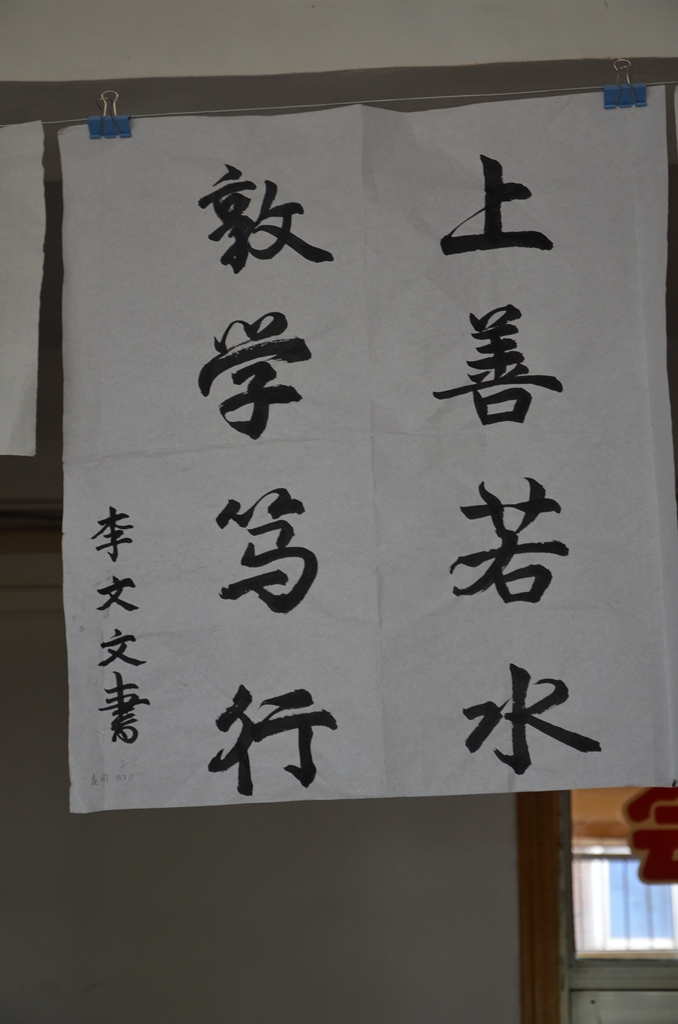 上善若水
敦学笃行
李文文書